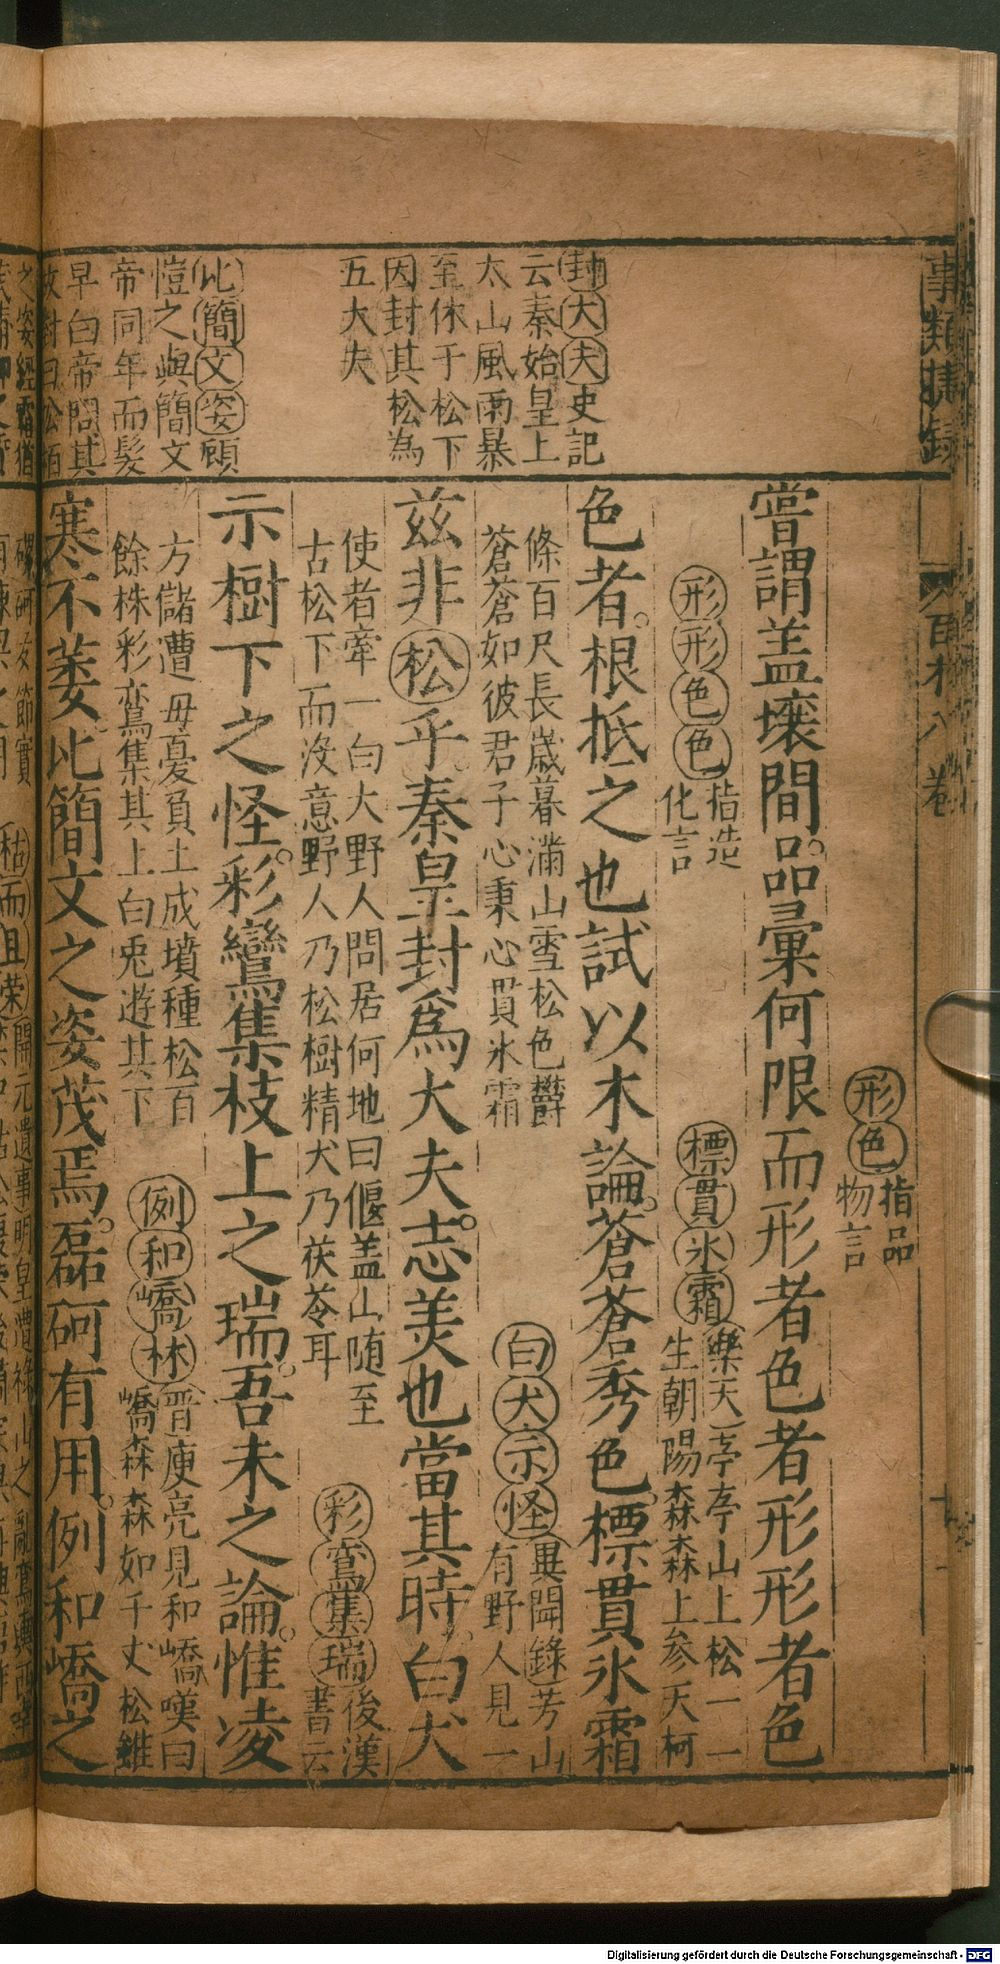 事類捷錄
百木八卷
封大夫史記
云秦始皇上
太山風雨暴
至休于松下
因封其松為
五大夫
比簡文姿顧
愷之與簡文
帝同年而髮
早白帝問其
故對曰松栢
之姿經霜猶
形色指品
物言
嘗謂盖壤間品彙何限而形者色者形形者色
形形色色指造
化言
標貫氷霜樂天亭亭山上松一一
生朝陽森森上参天柯
色者根抵之也試以木論蒼蒼秀色標貫氷霜
條百尺長歲暮滿山雪松色鬱
蒼蒼如彼君子心秉心貫氷霜
白犬示怪異聞錄芳山
有野人見一
兹非松乎秦皇封爲大夫志美也當其時白犬
使者牽一白犬野人問居何地曰偃盖山随至
古松下而沒意野人乃松樹精犬乃茯苓耳
彩鸞集瑞後漢
書云
示樹下之怪彩鸞集枝上之瑞吾未之論惟凌
方儲遭毋憂負土成墳種松百
餘株彩鸞集其上白兎遊其下
例和嶠林晉庾亮見和嶠嘆曰
嶠森森如千丈松雖
寒不萎比簡文之姿茂焉磊砢有用例和嶠之
節實
枯而且荣開元遺事明皇遭祿山之亂鸞輿西幸
Digitalisierung gefördert durch die Deutsche Forschungsgemeinschaft - DFG